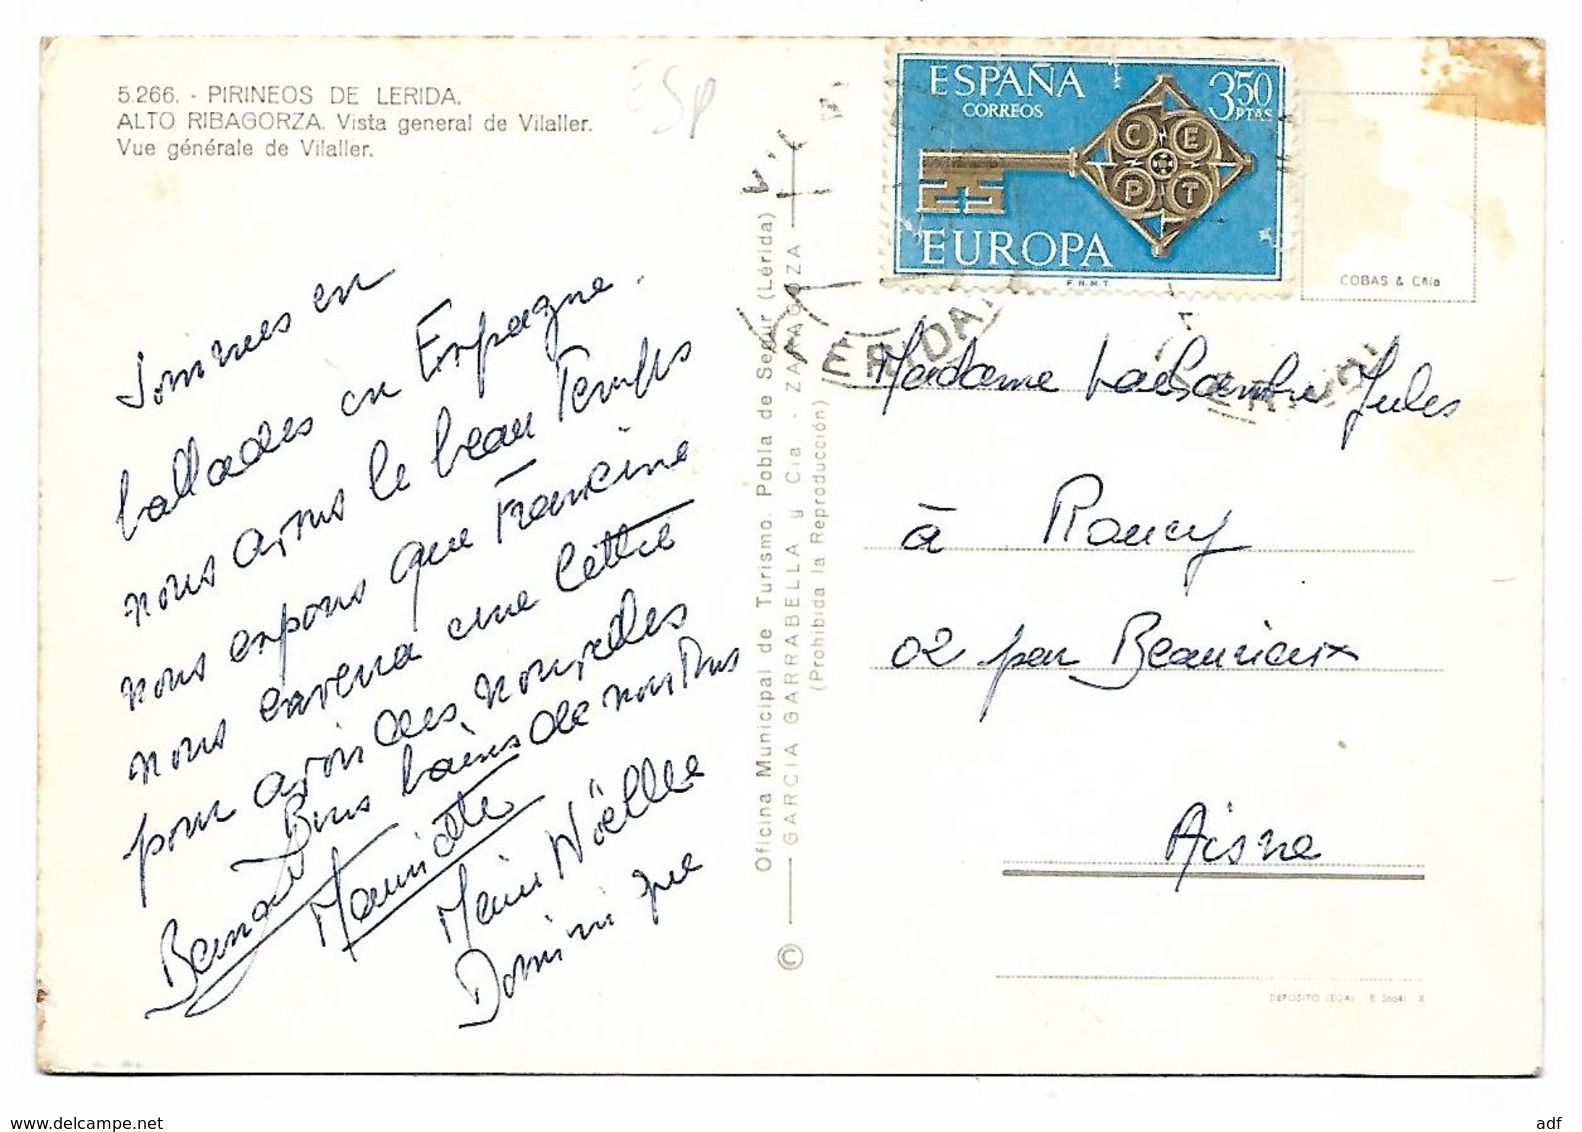 5.266. - PIRINEOS DE LERIDA.
ALTO RIBAGORZA. Vista general de Vilaller.
Vue générale de Vilaller.
ESP
ESPAÑA
CORREOS
3,50
PTAS
C E
P T
EUROPA
F.N.M.T.
COBAS & Cñía
LERIDA
Sommes en
ballades en Espagne.
nous avons le beau Temps
nous espons que Francine
nous envera une lettre
pour avoir des nouvelles
Bons baisers de nous Tous
Bernard
Mauricette
Marie Noëlle
Dominique
Oficina Municipal de Turismo. Pobla de Segur (Lérida)
GARCIA GARRABELLA y Cia. - ZARAGOZA
(Prohibida la Reproducción)
©
Madame Jules
à Roucy
02 par Beaurieux
Aisne
DEPOSITO LEGAL B. 36641 X
www.delcampe.net
adf